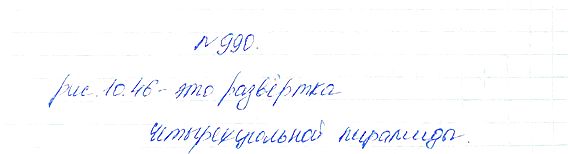 № 990.
рис. 10.46 - это развёртка
четырёхугольной пирамиды.